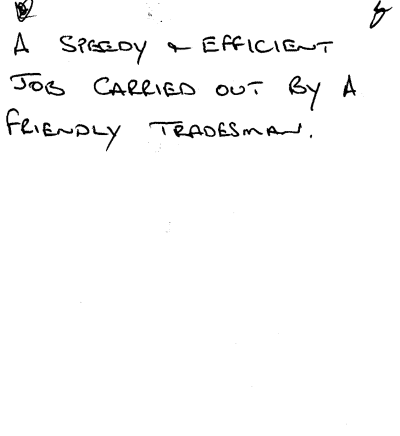 A SPEEDY & EFFICIENT
JOB CARRIED OUT BY A
FRIENDLY TRADESMAN.